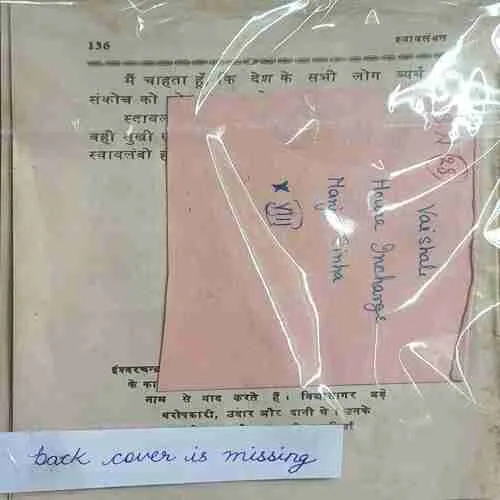 136 स्वावलंबन
मैं चाहता हूँ कि देश के सभी लोग व्यर्थ
संकोच को
स्वावल
वही सुखी
स्वावलंबी ह
28
Vaishali
House Incharge
Sinha
x VIII
ईश्वरचन्द्र
के का
नाम से याद करते हैं। विद्यासागर बड़े
परोपकारी, उदार और दानी थे। उनके
back cover is missing